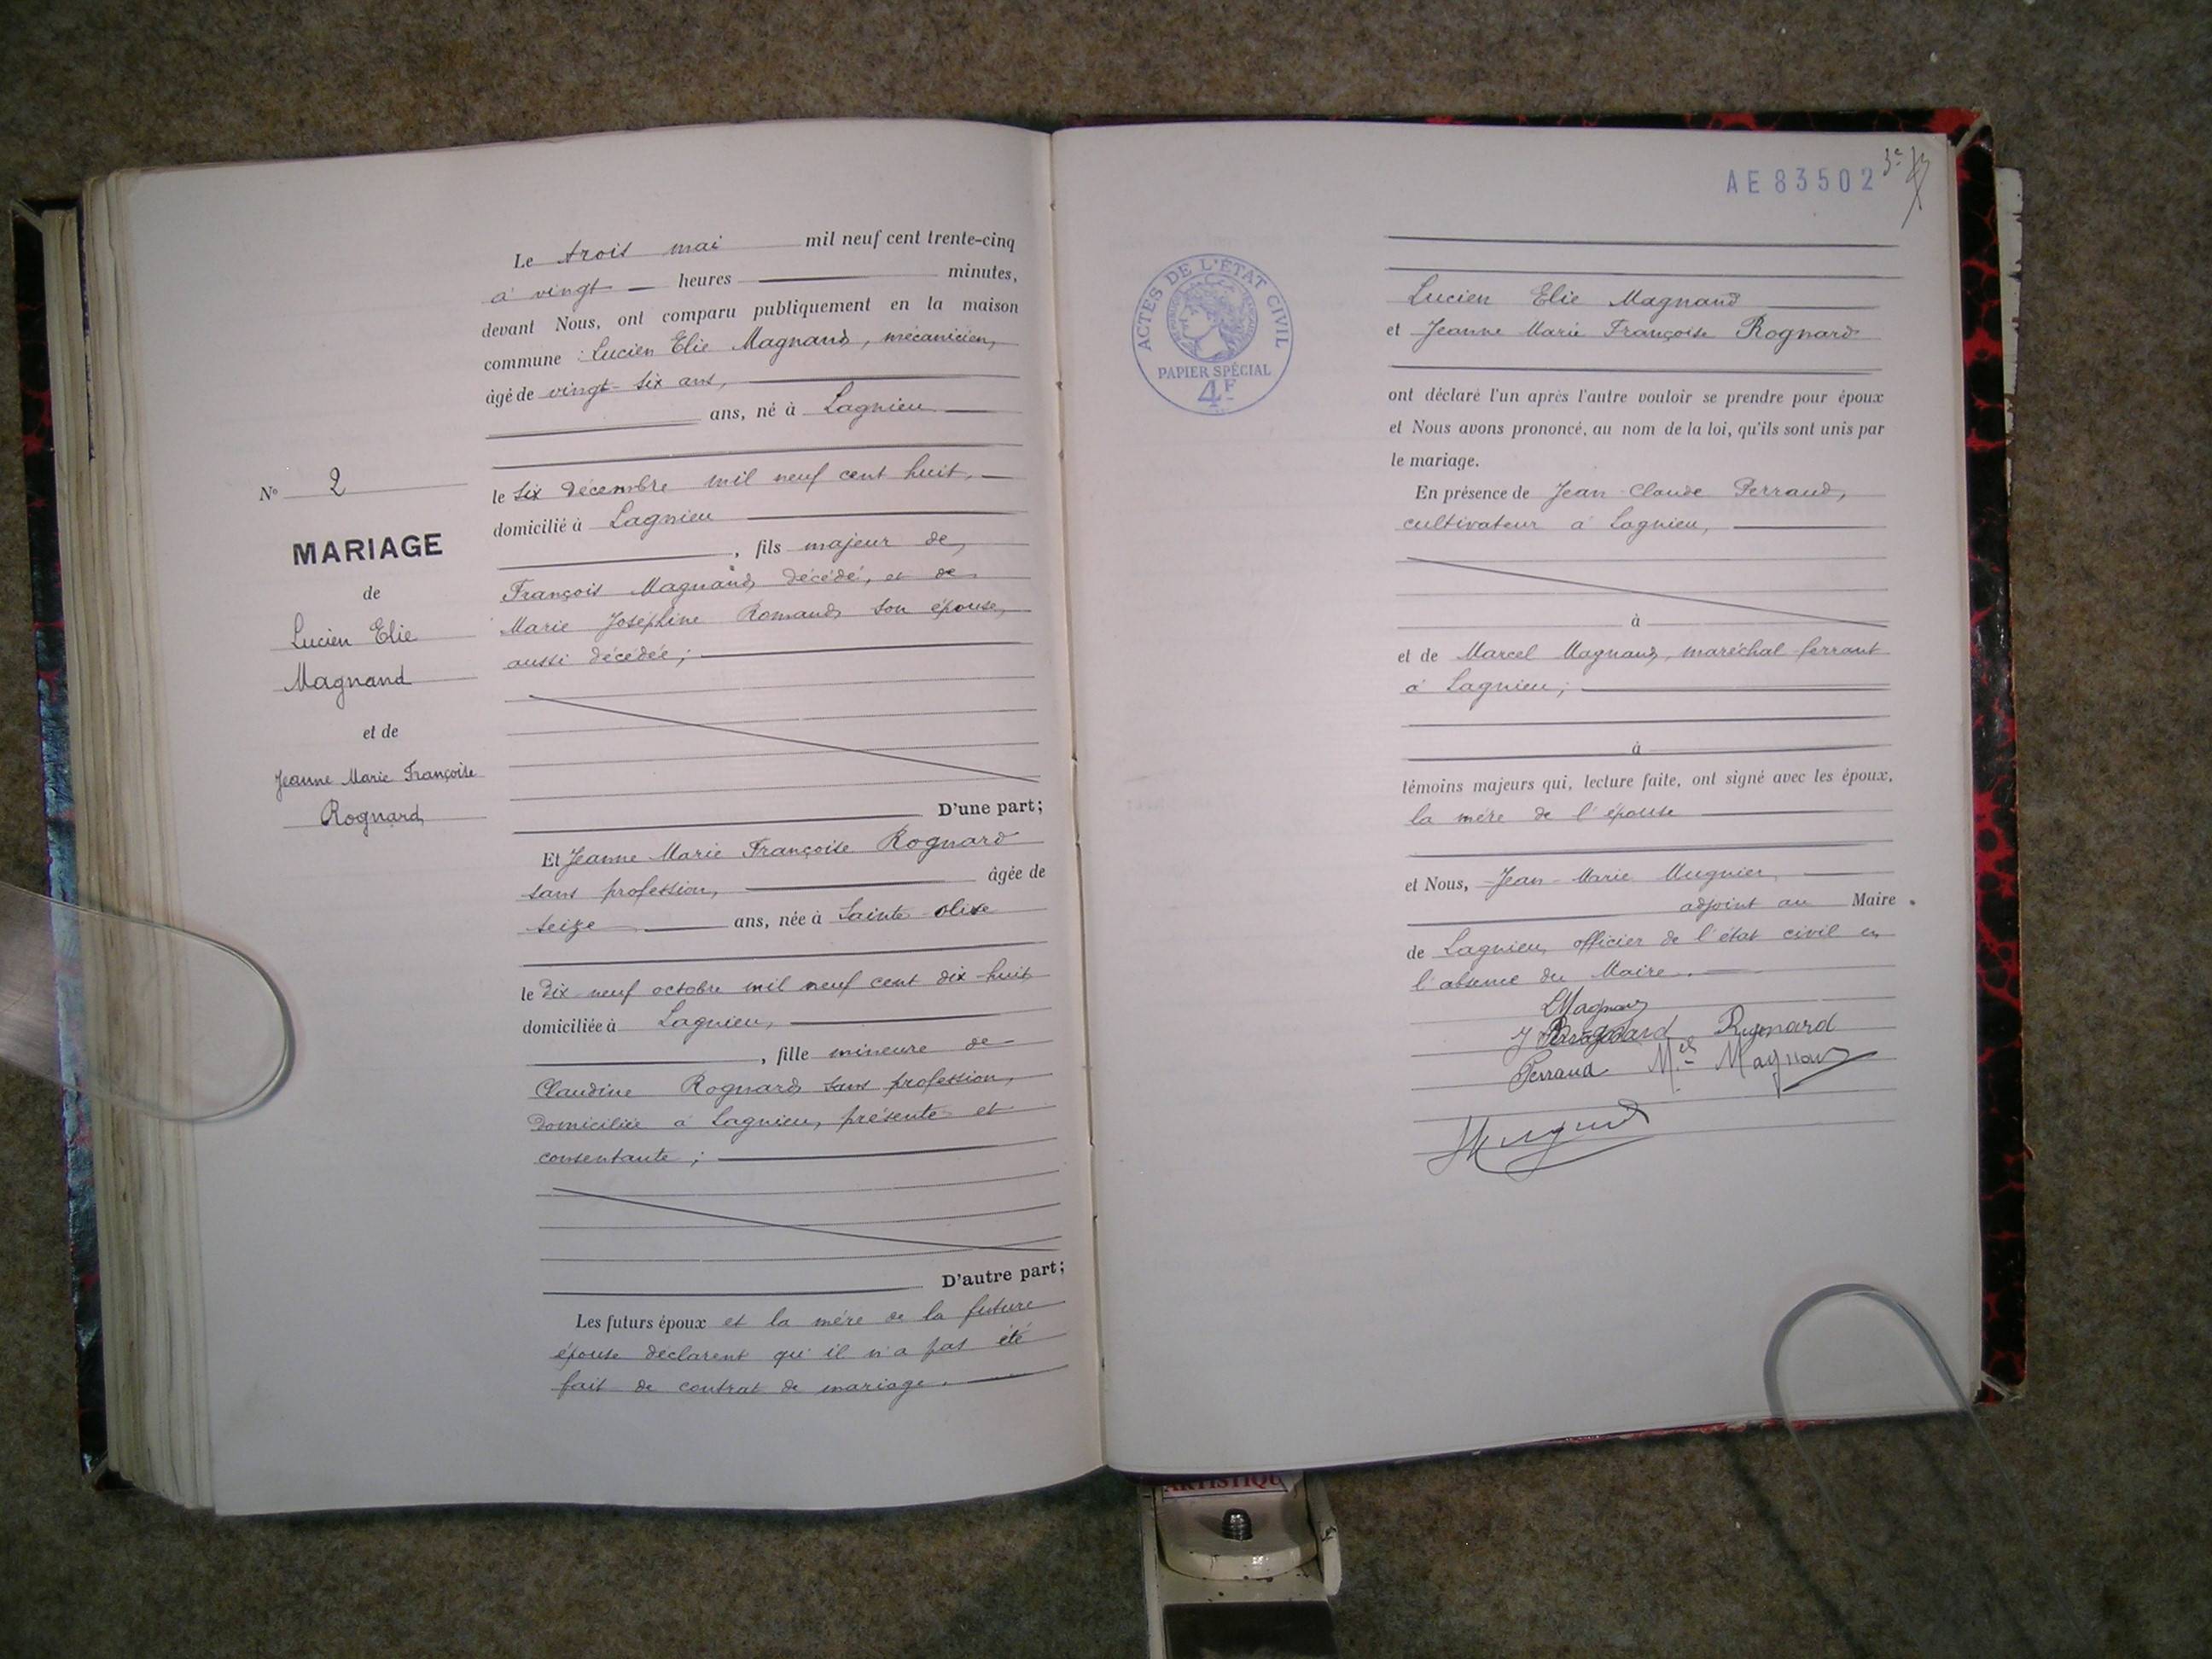 N° 2
MARIAGE
de
Lucien Elie
Magnand
et de
Jeanne Marie Françoise
Rognard
Le trois mai mil neuf cent trente-cinq
à vingt heures minutes,
devant Nous, ont comparu publiquement en la maison
commune : Lucien Elie Magnand, mécanicien,
âgé de vingt-six ans,
ans, né à Lagnieu
le six décembre mil neuf cent huit,
domicilié à Lagnieu
, fils majeur de
François Magnand, décédé, et de
Marie Joséphine Romand son épouse,
aussi décédée ;
D'une part;
Et Jeanne Marie Françoise Rognard
sans profession, âgée de
seize ans, née à Sainte-olive
le dix-neuf octobre mil neuf cent dix-huit
domiciliée à Lagnieu,
, fille mineure de
Claudine Rognard sans profession,
domiciliée à Lagnieu, présente et
consentante ;
D'autre part;
Les futurs époux et la mère de la future
épouse déclarent qu'il n'a pas été
fait de contrat de mariage.
AE 83502
ACTES DE L'ÉTAT CIVIL
PAPIER SPÉCIAL
4F
Lucien Elie Magnand
et Jeanne Marie Françoise Rognard
ont déclaré l'un après l'autre vouloir se prendre pour époux
et Nous avons prononcé, au nom de la loi, qu'ils sont unis par
le mariage.
En présence de Jean-Claude Perraud,
cultivateur à Lagnieu,
à
et de Marcel Magnand, maréchal ferrant
à Lagnieu ;
à
témoins majeurs qui, lecture faite, ont signé avec les époux,
la mère de l'épouse
et Nous, Jean-Marie Mugnier,
adjoint au Maire
de Lagnieu, officier de l'état civil en
l'absence du Maire.
LMagnand
Rognard
Perraud Mel Magnand
ARTISTIQU